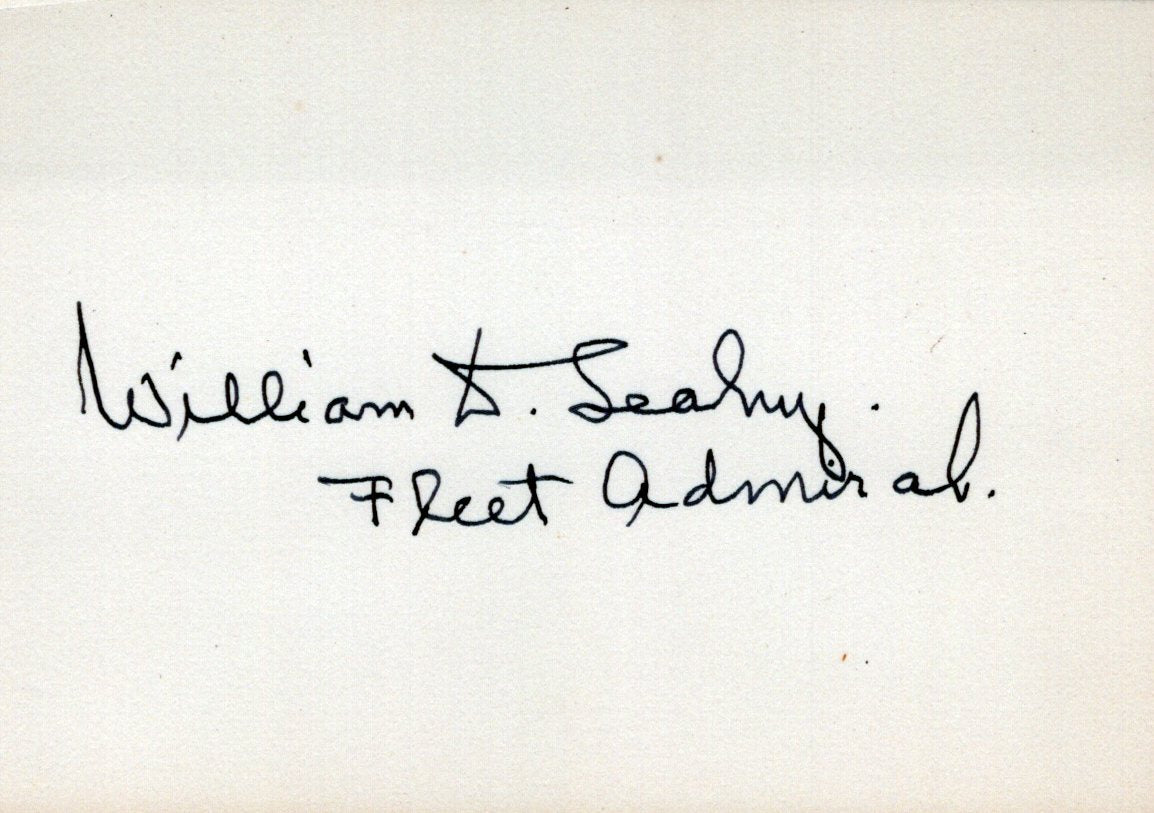 William D. Leahy.
Fleet Admiral.